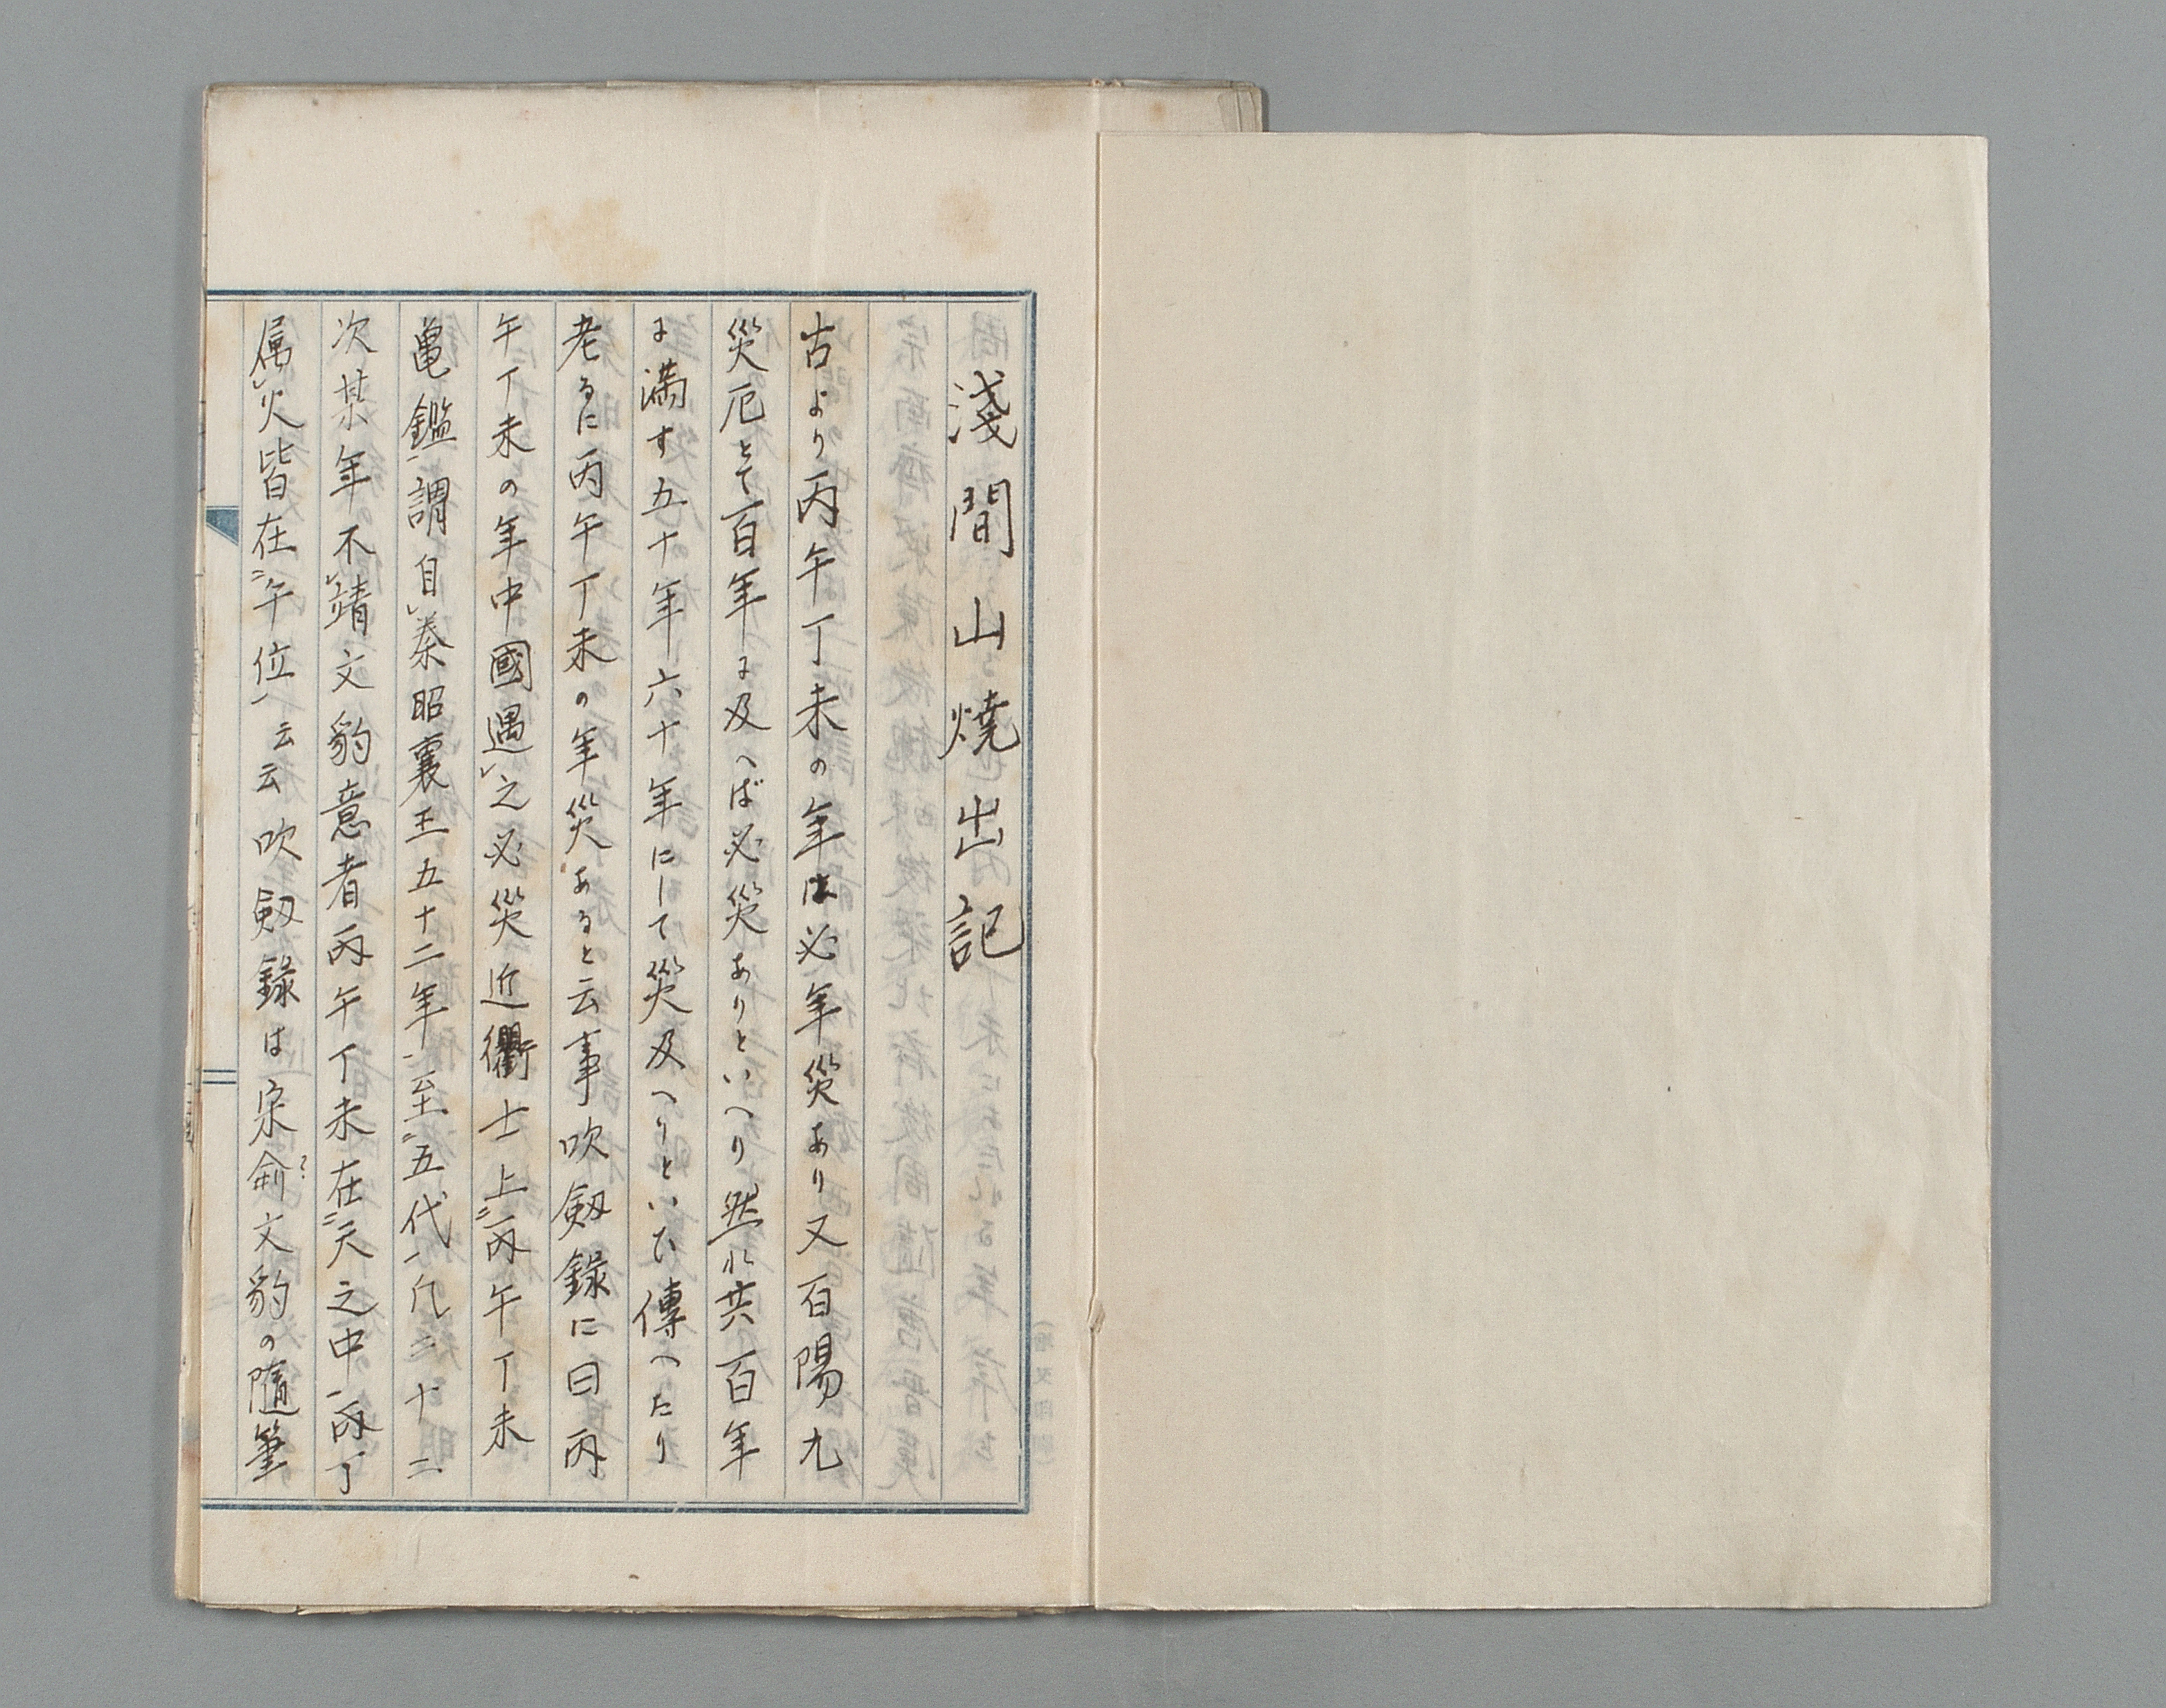 淺間山燒出記
古より丙午丁未の年は必年災あり又百陽九
災厄とて百年に及へば必災ありといへり然れ共百年
に満す五十年六十年にして災及へりといひ傳へたり
老るに丙午丁未の年災あると云事吹劔錄に曰丙
午丁未の年中國遇レ之必災近衢士上二丙午丁未
亀鑑一謂自レ秦昭襄王五十二年一至二五代一凡二十二
次某年不レ靖文豹意者丙午丁未在二天之中一丙丁
属レ火皆在二午位一云云吹劔錄は宋俞文豹の隨筆